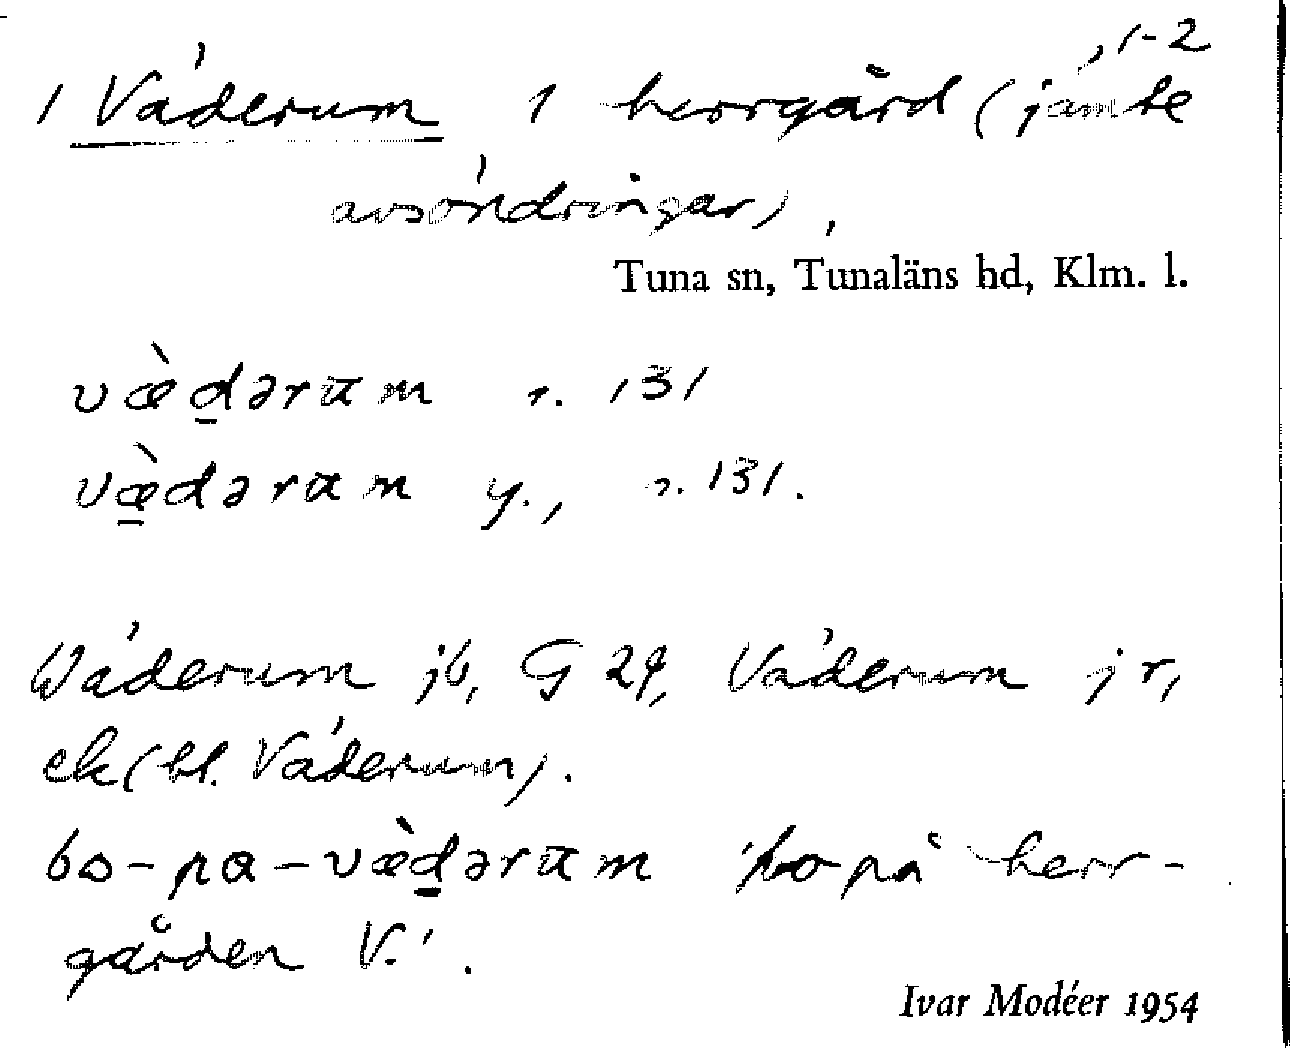 , 1-2
1 Väderum 1 herrgård (jämte
avsöndringar),
Tuna sn, Tunaläns hd, Klm. l.
væ̀dərum s. 131
væ̀dərum y., s. 131.
Wäderum jb, G 24, Väderum jr,
ek (bl. Väderum).
bo-pa-væ̀dərum 'bo på herr-
gården V.'.
Ivar Modéer 1954